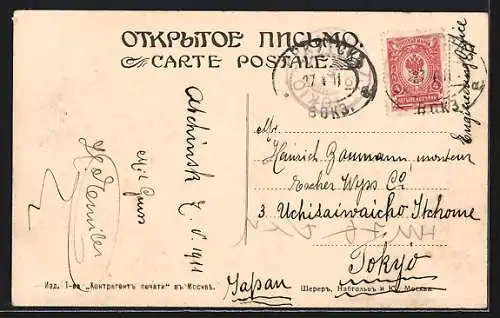 ОТКРЫТОЕ ПИСЬМО.
CARTE POSTALE.
ИРКУТСК
27 4 11
ВОКЗ.
ВОКЗ.
Engineering Office
Atchinsk 7. V. 1911
Mit Gruss
Mr.
Heinrich Baumann, monteur
Escher Wyss Co
3. Uchisaiwaicho Itchome
Tokyo
Japan
Изд. Т-ва „Контрагент печати“ въ Москвѣ.
Шереръ, Набгольцъ и Ко Москва.